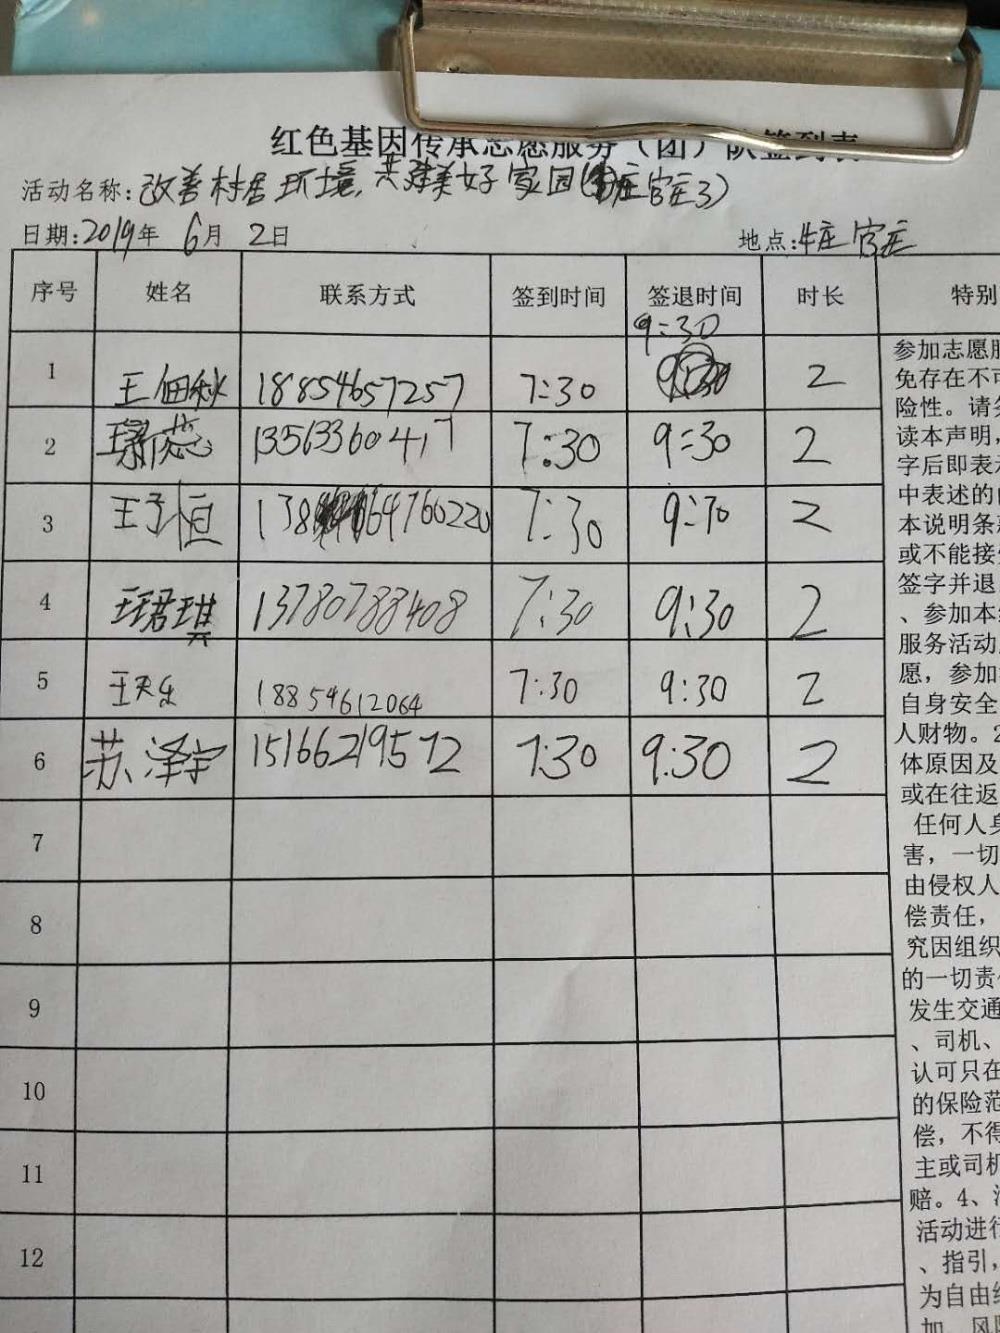 红色基因传承志愿服务（团）队签到表
活动名称:改善村居环境,共建美好家园(庄官庄3)
日期:2019年 6月 2日 地点:牛庄官庄
序号 姓名 联系方式 签到时间 签退时间 时长 特别
9:30
1 王佃秋 18854657257 7:30 2
2 蕊 13563360417 7:30 9:30 2
3 王子恒 7:30 9:30 2
4 王君琪 13780788408 7:30 9:30 2
5 王天乐 18854612064 7:30 9:30 2
6 苏泽宇 15166219572 7:30 9:30 2
7
8
9
10
11
12
参加志愿服
免存在不可
险性。请务
读本声明，
字后即表示
中表述的
本说明条
或不能接
签字并退
、参加本
服务活动
愿，参加
自身安全
人财物。2
体原因及
或在往返
任何人身
害，一切
由侵权人
偿责任，
究因组织
的一切责任
发生交通
、司机、
认可只在
的保险范
偿，不得
主或司机
赔。4、
活动进行
、指引，
为自由
加，风险